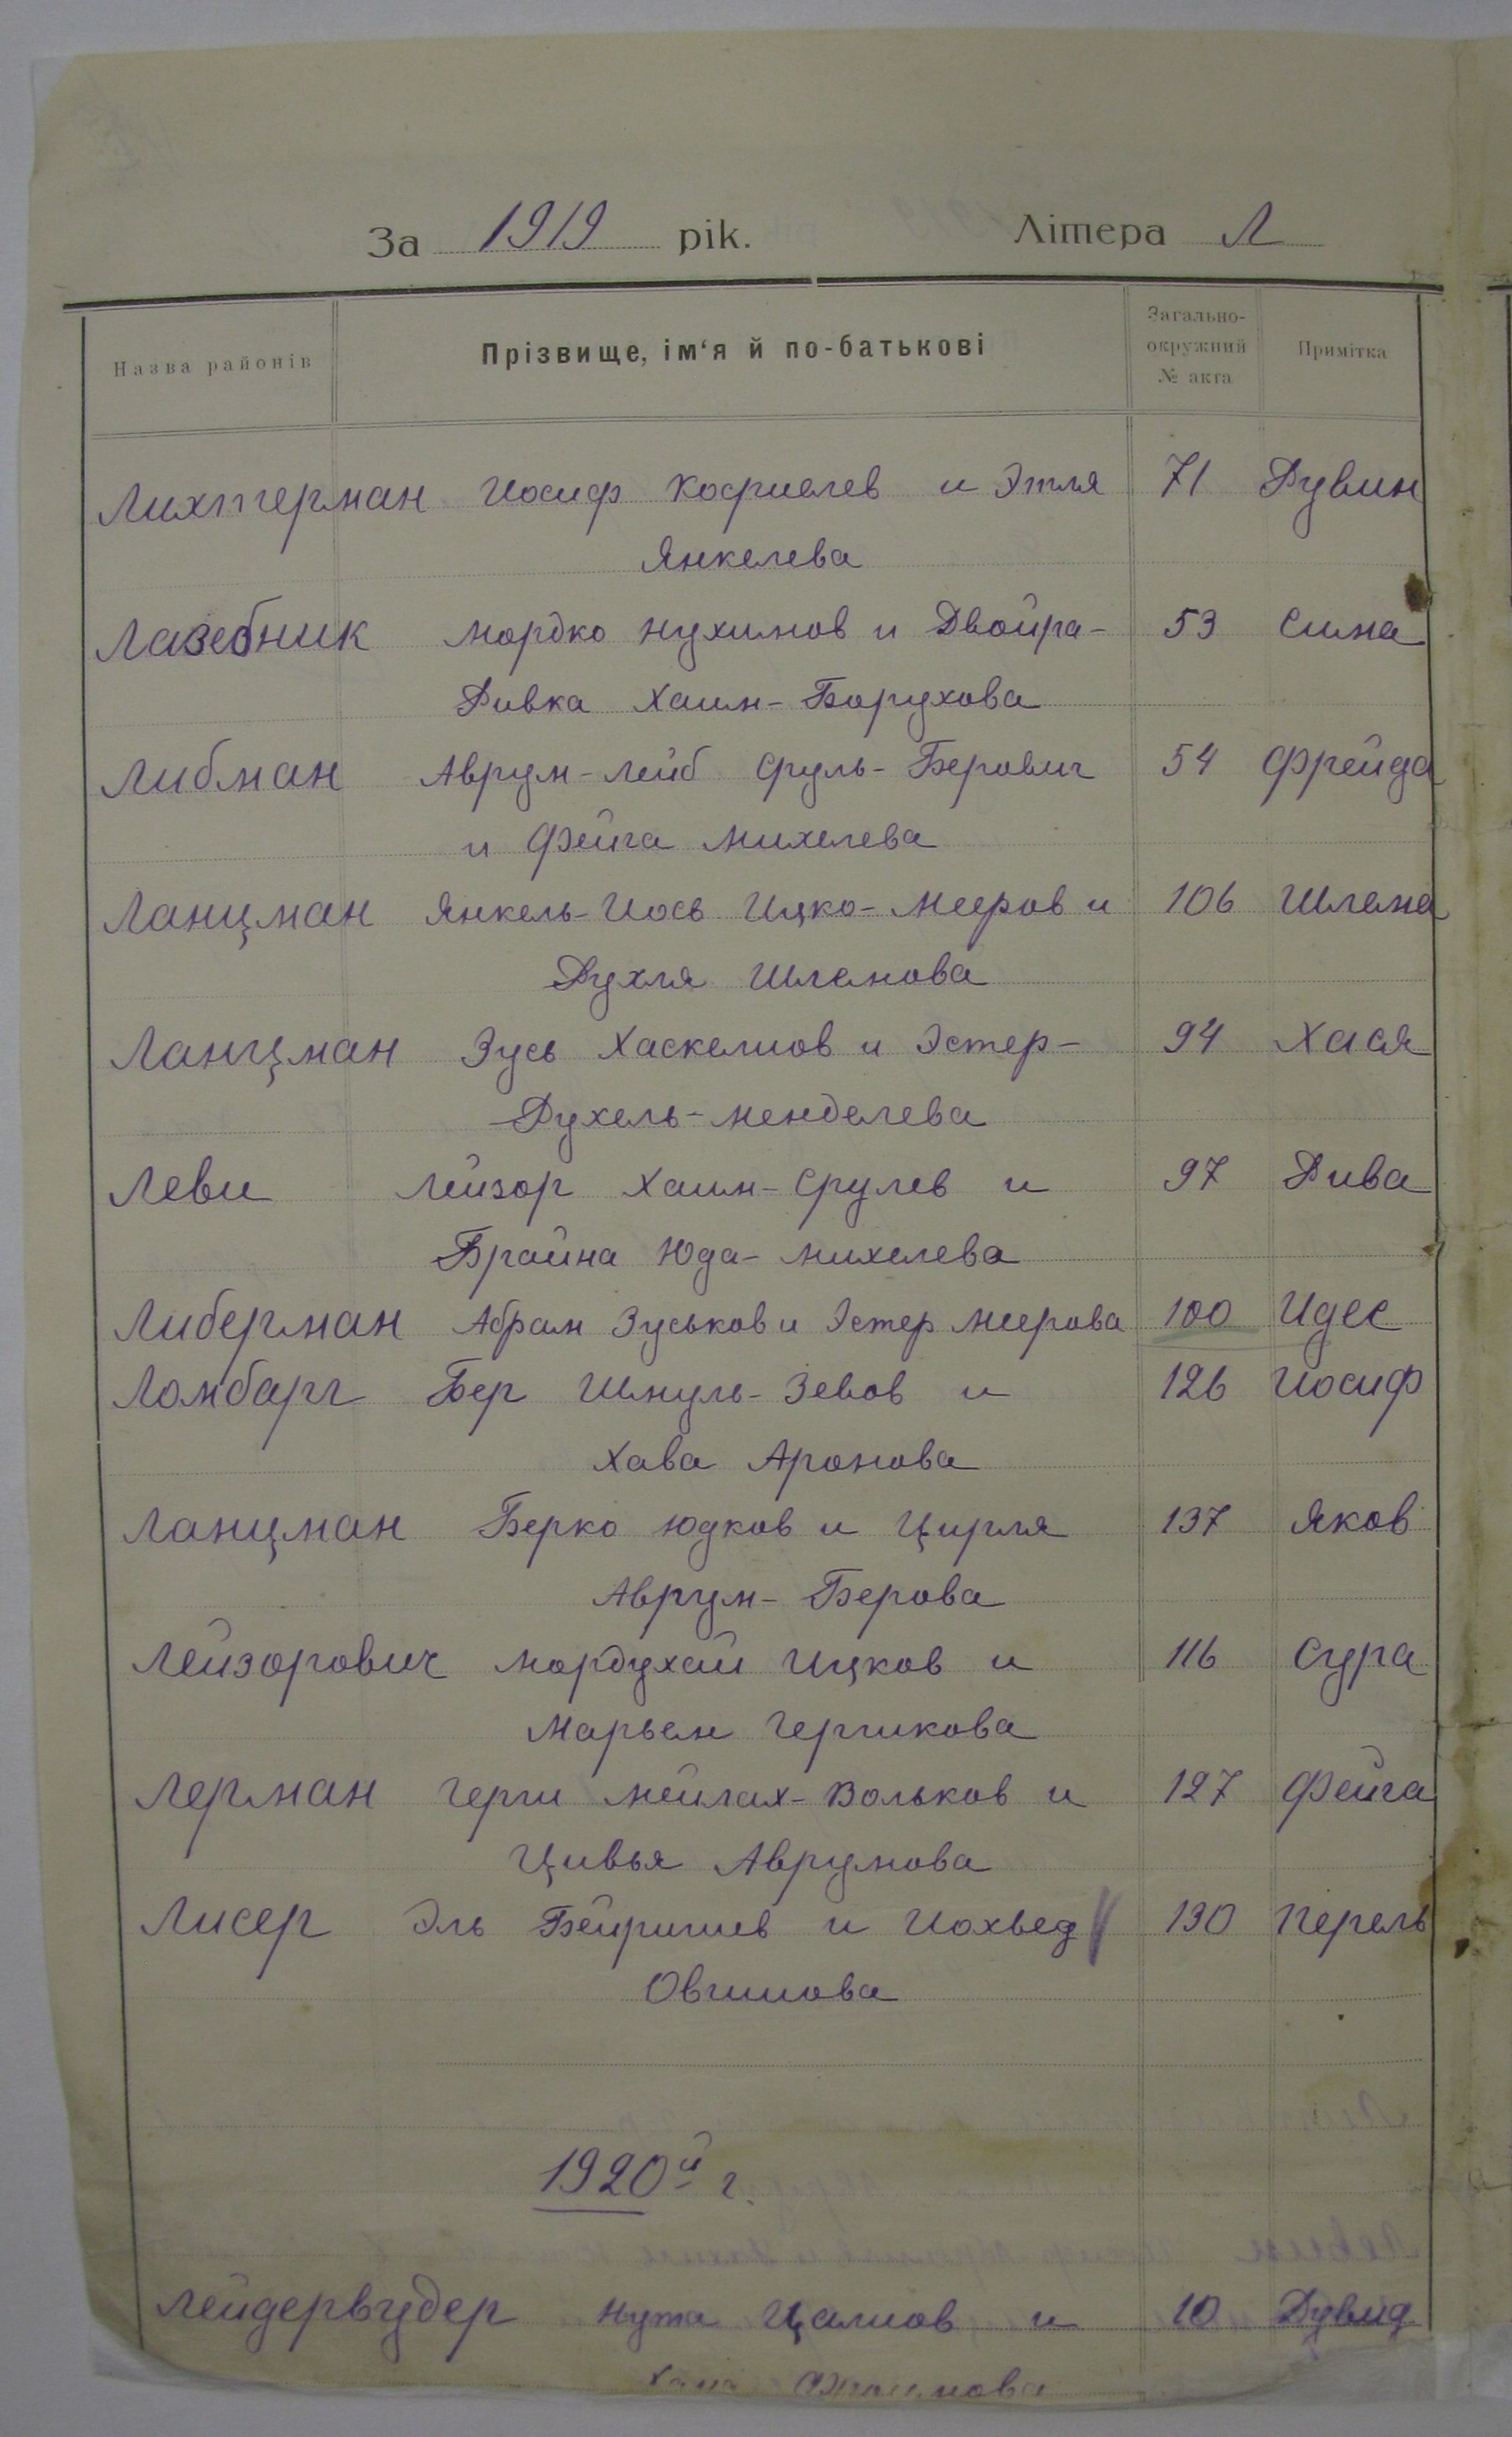 За 1919 рік. Літера Л
Назва районів Прізвище, ім‘я й по-батькові Загально-окружний № акта Примітка
Лихтерман Иосиф Кофиелев и Этля 71 Рувин
Янкелева
Лазебник Мордко Нухимов и Двойра- 53 Сима
Ривка Хаим-Борухова
Либман Аврум-Лейб Сруль-Берович 54 Фрейда
и Фейга Михелева
Ланцман Янкель-Иось Ицко-Мееров и 106 Шлема
Рухля Шлемова
Ланцман Зусь Хаскелиов и Эстер- 94 Хася
Рухель-Менделева
Леви Лейзор Хаим-Срулев и 97 Рива
Брайна Юда-Михелева
Либерман Абрам Зуськов и Эстер Меерова 100 Идес
Ломбарг Бер Шмуль-Зевов и 126 Иосиф
Хава Аронова
Ланцман Берко Юдков и Цирля 137 Яков
Аврум-Берова
Лейзорович Мордухай Ицков и 116 Сура
Марьем Гершкова
Лерман Герш Мейлах-Вольков и 127 Фейга
Цивья Аврумова
Лисер Эль Бейришев и Иохвед 130 Перель
Овшиова
1920й г.
Лейдервудер Нута Цалиов и 10 Дувид